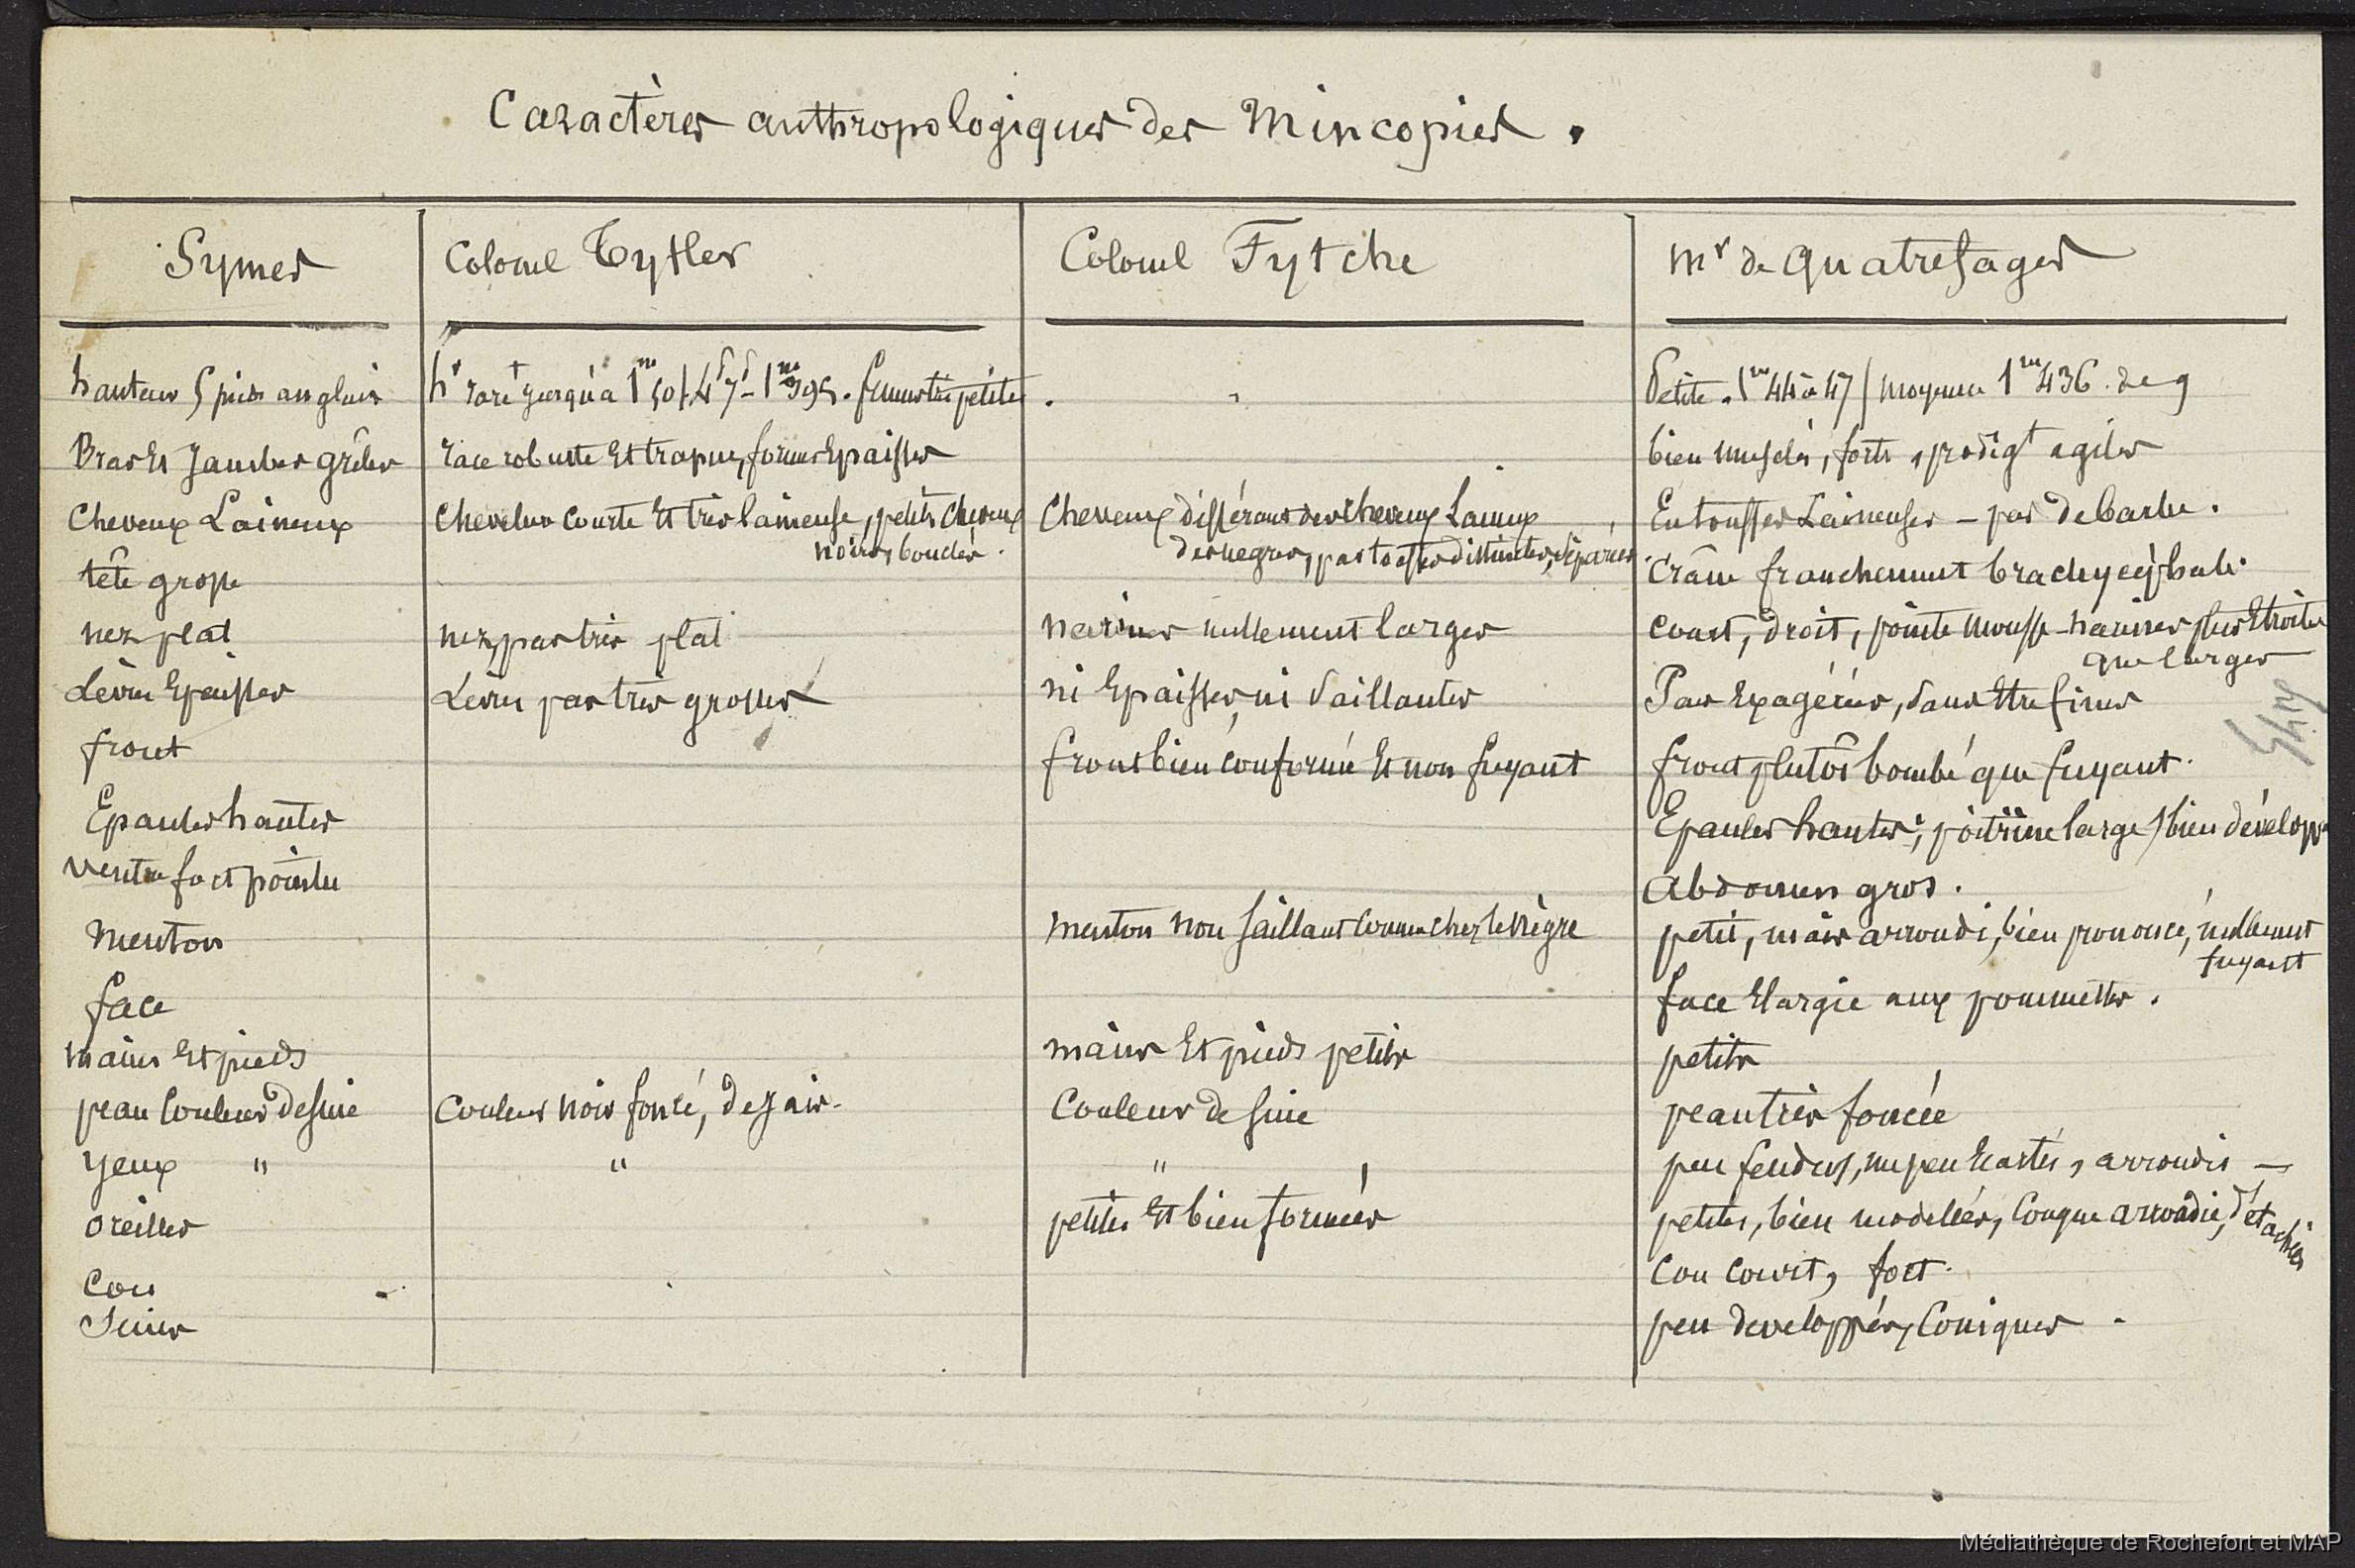 Caractères anthropologiques des Mincopies.
Symes
Colonel Tytler
Colonel Fytche
Mr de Quatrefages
hauteur 5 pieds anglais
hr rart jusqu'à 1m 50 / 4p 7p - 1m 395. femmes très petites
Petite. 1m 44 à 47 / moyenne 1m 436. de q
Bras et Jambes grêles
race robuste et trapue, formes épaisses
bien musclés, forts, prodigt agiles
Cheveux Laineux
Chevelure courte et très laineuse, petits cheveux
noirs, bouclés.
Cheveux différant des cheveux laineux
des nègres, pas touffes distinctes, séparées
En touffes Laineuses - pas de barbe.
tête grosse
Crâne franchement brachycéphale.
nez plat
nez pas très plat
narines nullement larges
court, droit, pointe mousse - narines plus étroites
que larges
Lèvres épaisses
Lèvres pas très grosses
ni épaisses, ni saillantes
Pas exagérées, sans être fines
front
front bien conformé et non fuyant
front plutôt bombé que fuyant.
Epaules hautes
Epaules hautes, poitrine large / bien dévelop
Ventre fort pointu
Abdomen gros.
Menton
menton non saillant comme chez le nègre
petit, mais arrondi, bien prononcé, nullement
fuyant
face
face élargie aux pommettes.
mains et pieds
mains et pieds petits
petits
peau couleur de suie
Couleur noir foncé, de jais.
Couleur de suie
peau très foncée
Yeux "
"
"
peu fendus, un peu écartés, arrondis -
oreilles
petites et bien formées
petites, bien modelées, conque arrondie, détachées
Cou
Cou court, fort.
Seins
peu développés, coniques.
Médiathèque de Rochefort et MAP